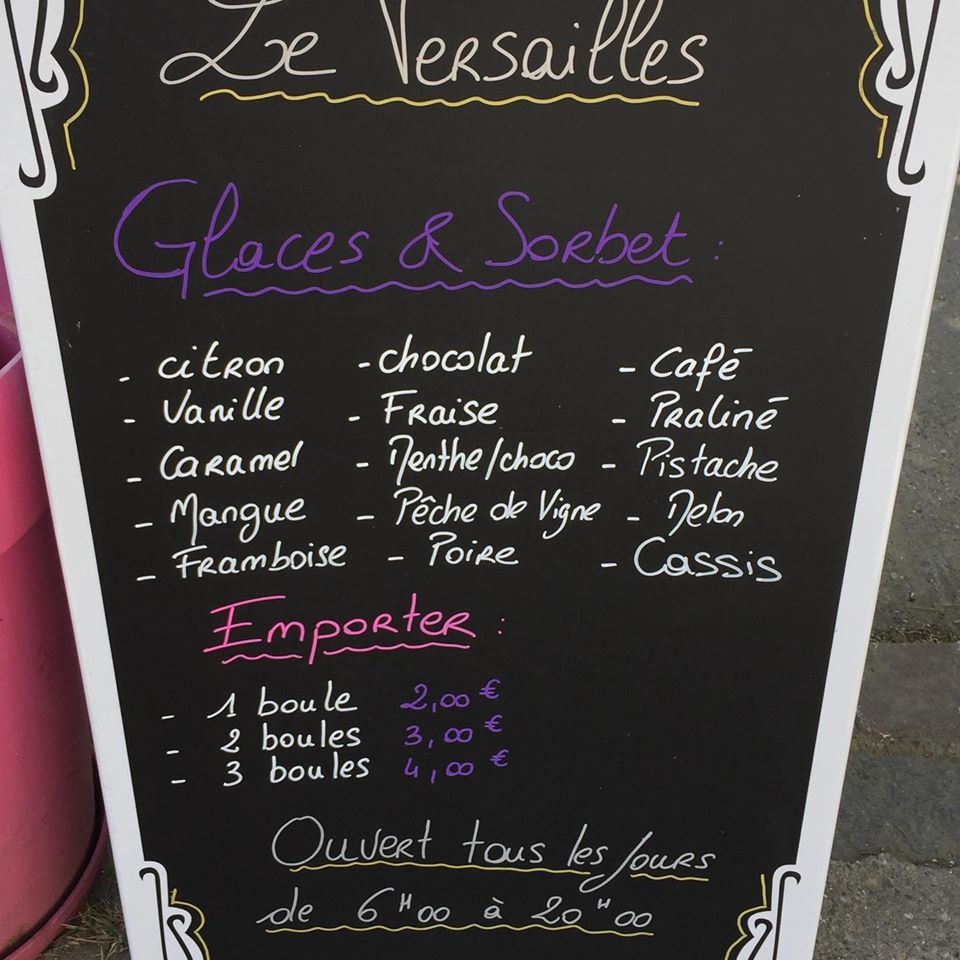 Le Versailles
Glaces & Sorbet :
- citron - chocolat - Café
- Vanille - Fraise - Praliné
- Caramel - Menthe/choco - Pistache
- Mangue - Pêche de Vigne - Melon
- Framboise - Poire - Cassis
Emporter :
- 1 boule 2,00 €
- 2 boules 3,00 €
- 3 boules 4,00 €
Ouvert tous les jours
de 6H00 à 20H00